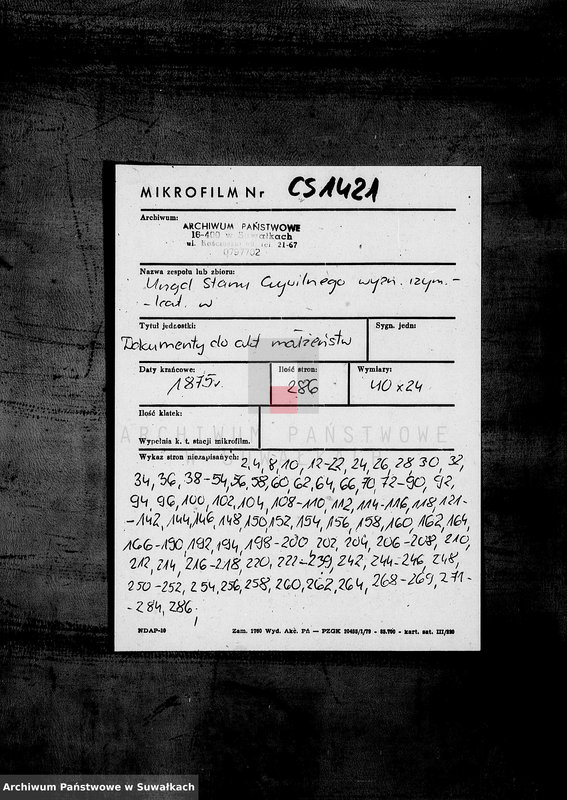 MIKROFILM Nr CS1421
Archiwum:
ARCHIWUM PAŃSTWOWE
16-400 w Suwałkach
ul. Kościuszki tel. 21-67
Nazwa zespołu lub zbioru:
Urząd Stanu Cywilnego wyzn. rzym.-
-kat. w
Tytuł jednostki:
Sygn. jedn:
Dokumenty do akt małżeństw
Daty krańcowe:
Ilość stron:
Wymiary:
1875r.
286
40 x 24
Ilość klatek:
Wypełnia k. t. stacji mikrofilm.
ARCHIWUM PAŃSTWOWE
W SUWAŁKACH
Wykaz stron niezapisanych: 2,4,8,10,12-22,24,26,28,30,32,
34,36,38-54,56,58,60,62,64,66,70,72-90,92,
94,96,100,102,104,108-110,112,114-116,118,121-
-142,144,146,148,150,152,154,156,158,160,162,164,
166-190,192,194,198-200,202,204,206-208,210,
212,214,216-218,220,222-239,242,244-246,248,
250-252,254,256,258,260,262,264,268-269,271-
-284,286.
NDAP-10
Zam. 1760 Wyd. Akc. Pń — PZGK 20453/I/79 - 85.700 - kart. sat. III/220
Archiwum Państwowe w Suwałkach